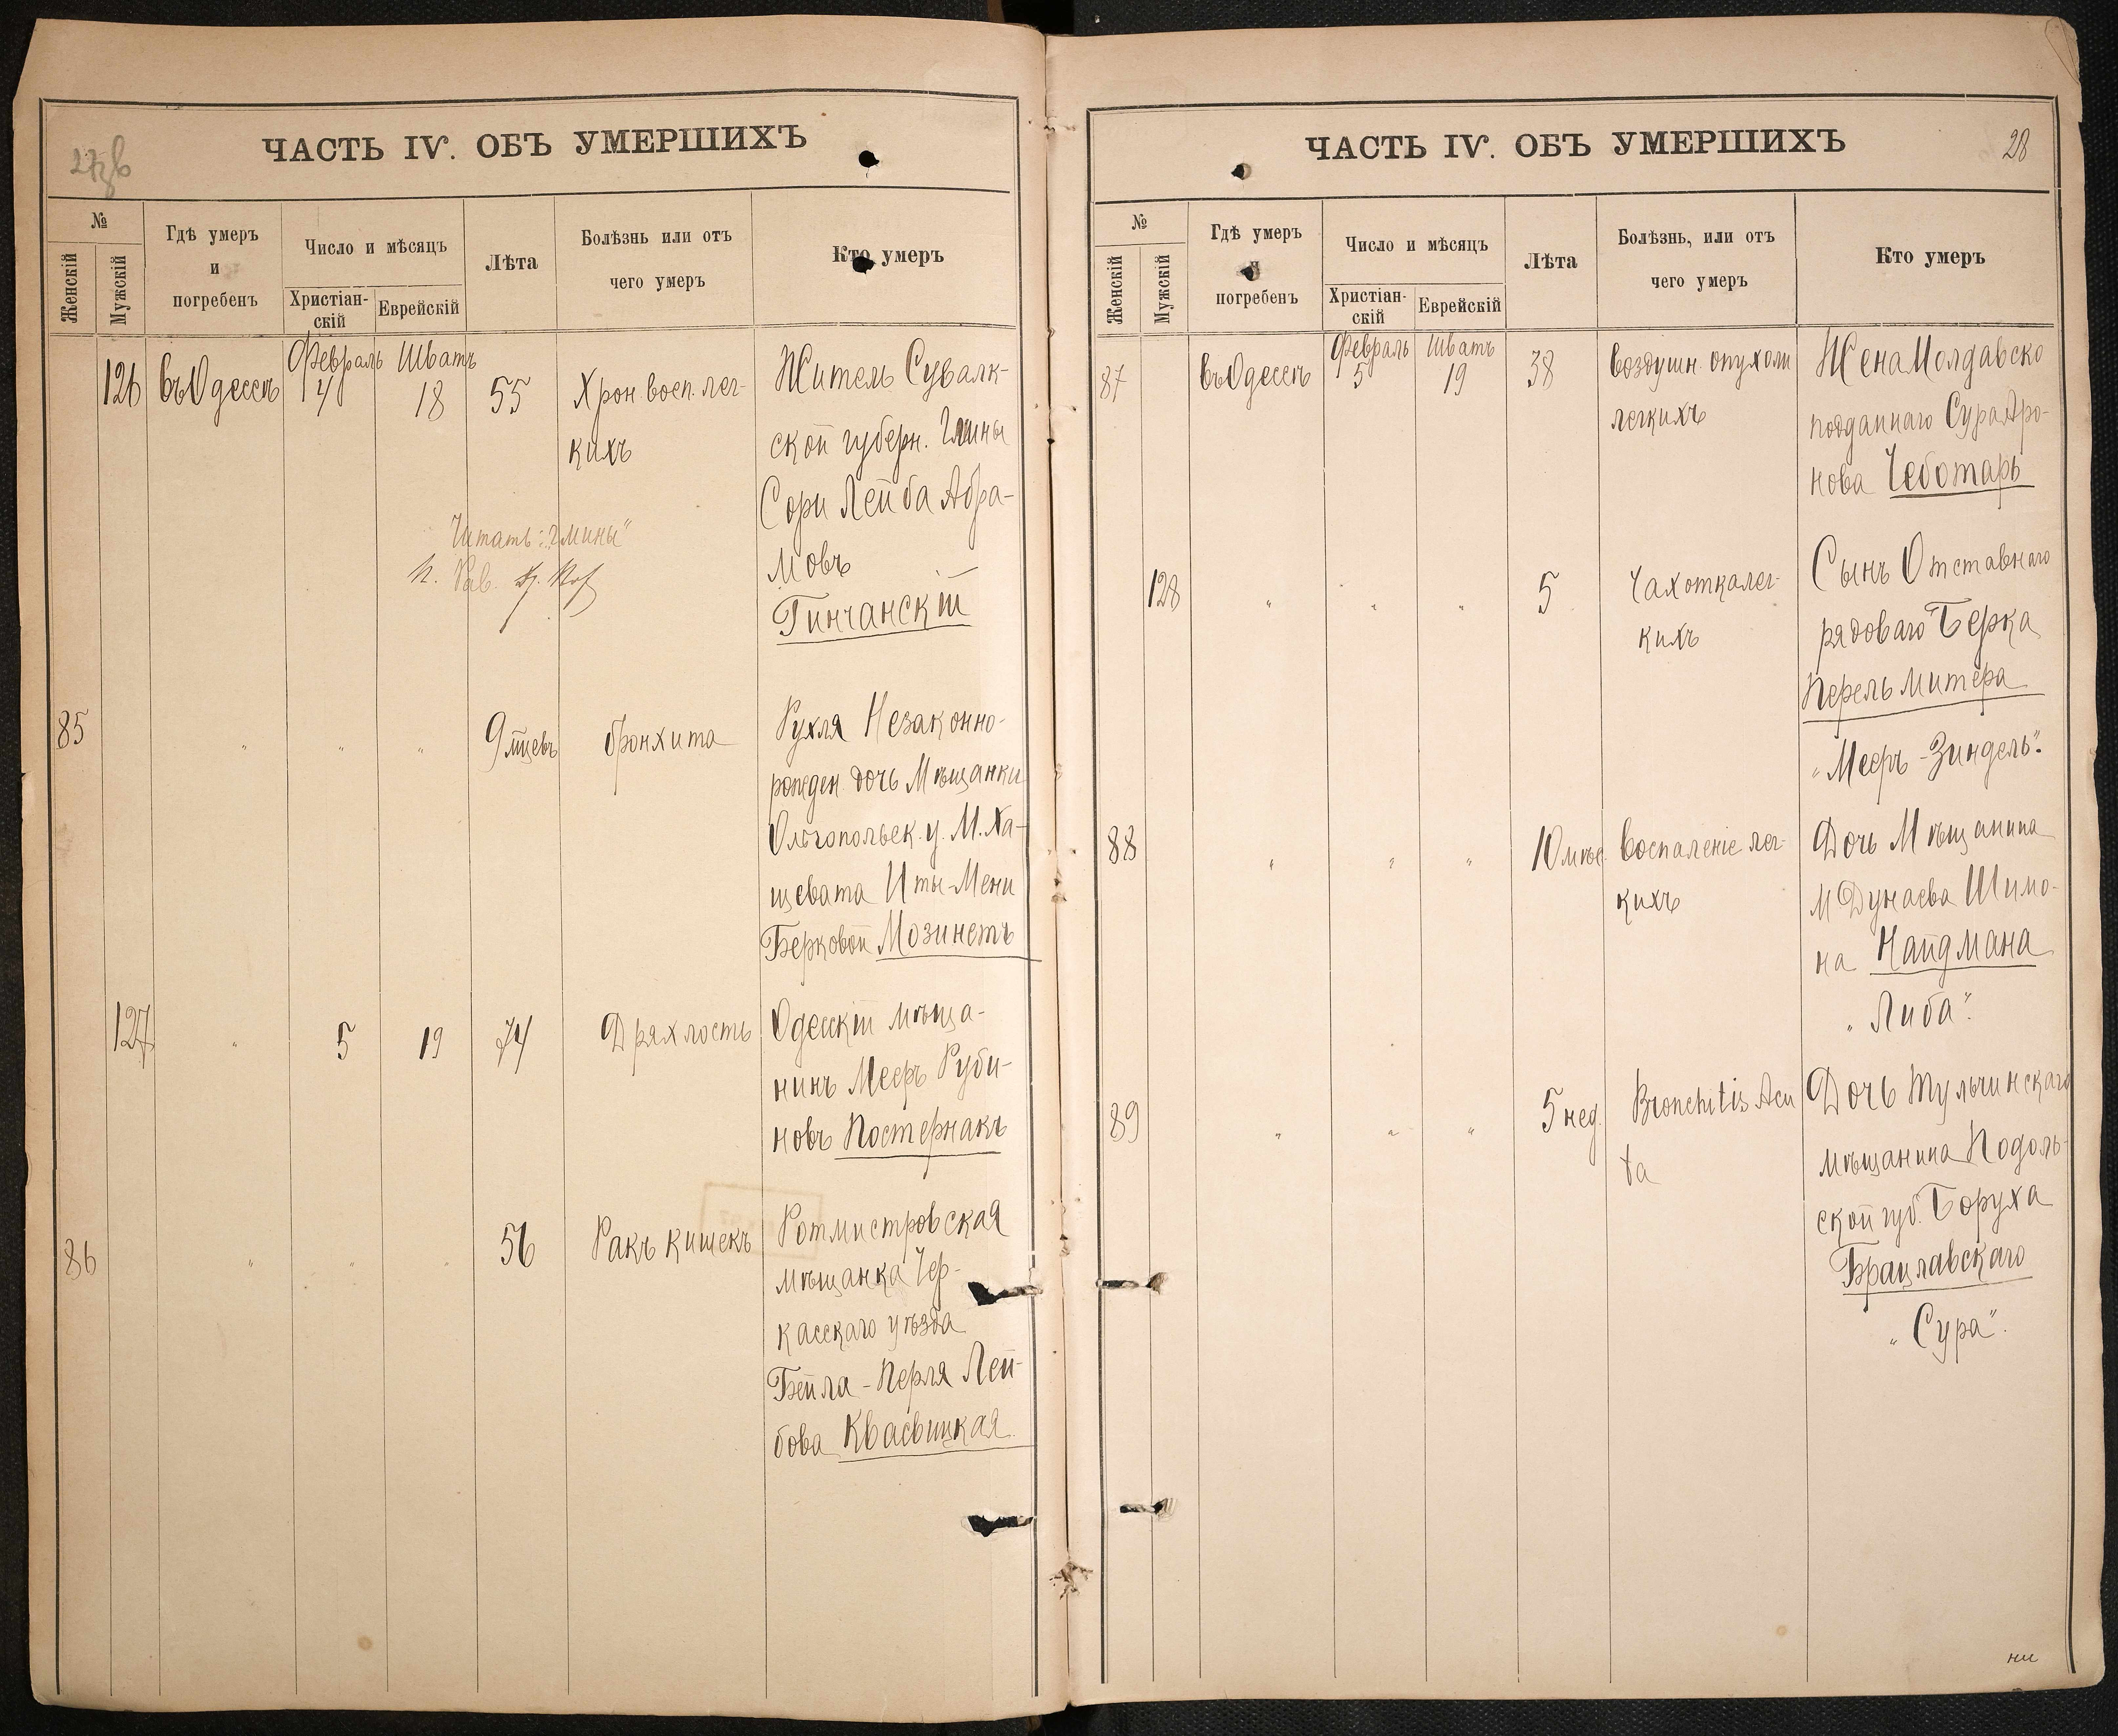 27зв
ЧАСТЬ IV. ОБЪ УМЕРШИХЪ
№
Женскій
Мужскій
Гдѣ умеръ
и
погребенъ
Число и мѣсяцъ
Христіан-
скій
Еврейскій
Лѣта
Болѣзнь или отъ
чего умеръ
Кто умеръ
126 въ Одессѣ Февраль 4 Шватъ 18 55 Хрон. восп. лег-
кихъ
Житель Сувалк-
ской губерн. Гмины
Сори Лейба Абра-
мовъ
Гинчанскій
Читать: "Гмины"
Рав.
85 " " " 9 мцевъ бронхита
Рухля Незаконно-
рожден дочь Мѣщанки
Ольгопольск. у. М. Ха-
щевата Иты-Мени
Берковой Мозинетъ
127 " 5 19 74 Дряхлость
Одесскій мѣща-
нинъ Мееръ Руби-
новъ Постернакъ
86 " " " 56 Ракъ кишекъ
Ротмистровская
мѣщанка Чер-
касскаго уѣзда
Бейла-Перля Лей-
бова Квасвицкая
ЧАСТЬ IV. ОБЪ УМЕРШИХЪ
28
№
Женскій
Мужскій
Гдѣ умеръ
и
погребенъ
Число и мѣсяцъ
Христіан-
скій
Еврейскій
Лѣта
Болѣзнь, или отъ
чего умеръ
Кто умеръ
87 въ Одессѣ Февраль 5 Шватъ 19 38 воздушн. опухоли
легкихъ
Жена Молдавско
подданнаго Сура Аро-
нова Чеботарь
128 " " " 5 Чахотка лег-
кихъ
Сынъ Отставнаго
рядоваго Берка
Перельмитера
"Мееръ-Зиндель".
88 " " " 10 мѣс. Воспаленіе лег-
кихъ
Дочь Мѣщанина
М Дунаева Шимо-
на Найдмана
"Либа".
89 " " " 5 нед. Bronchitis Acu
ta
Дочь Тульчинскаго
мѣщанина Подоль-
ской губ. Боруха
Брацлавскаго
"Сура".